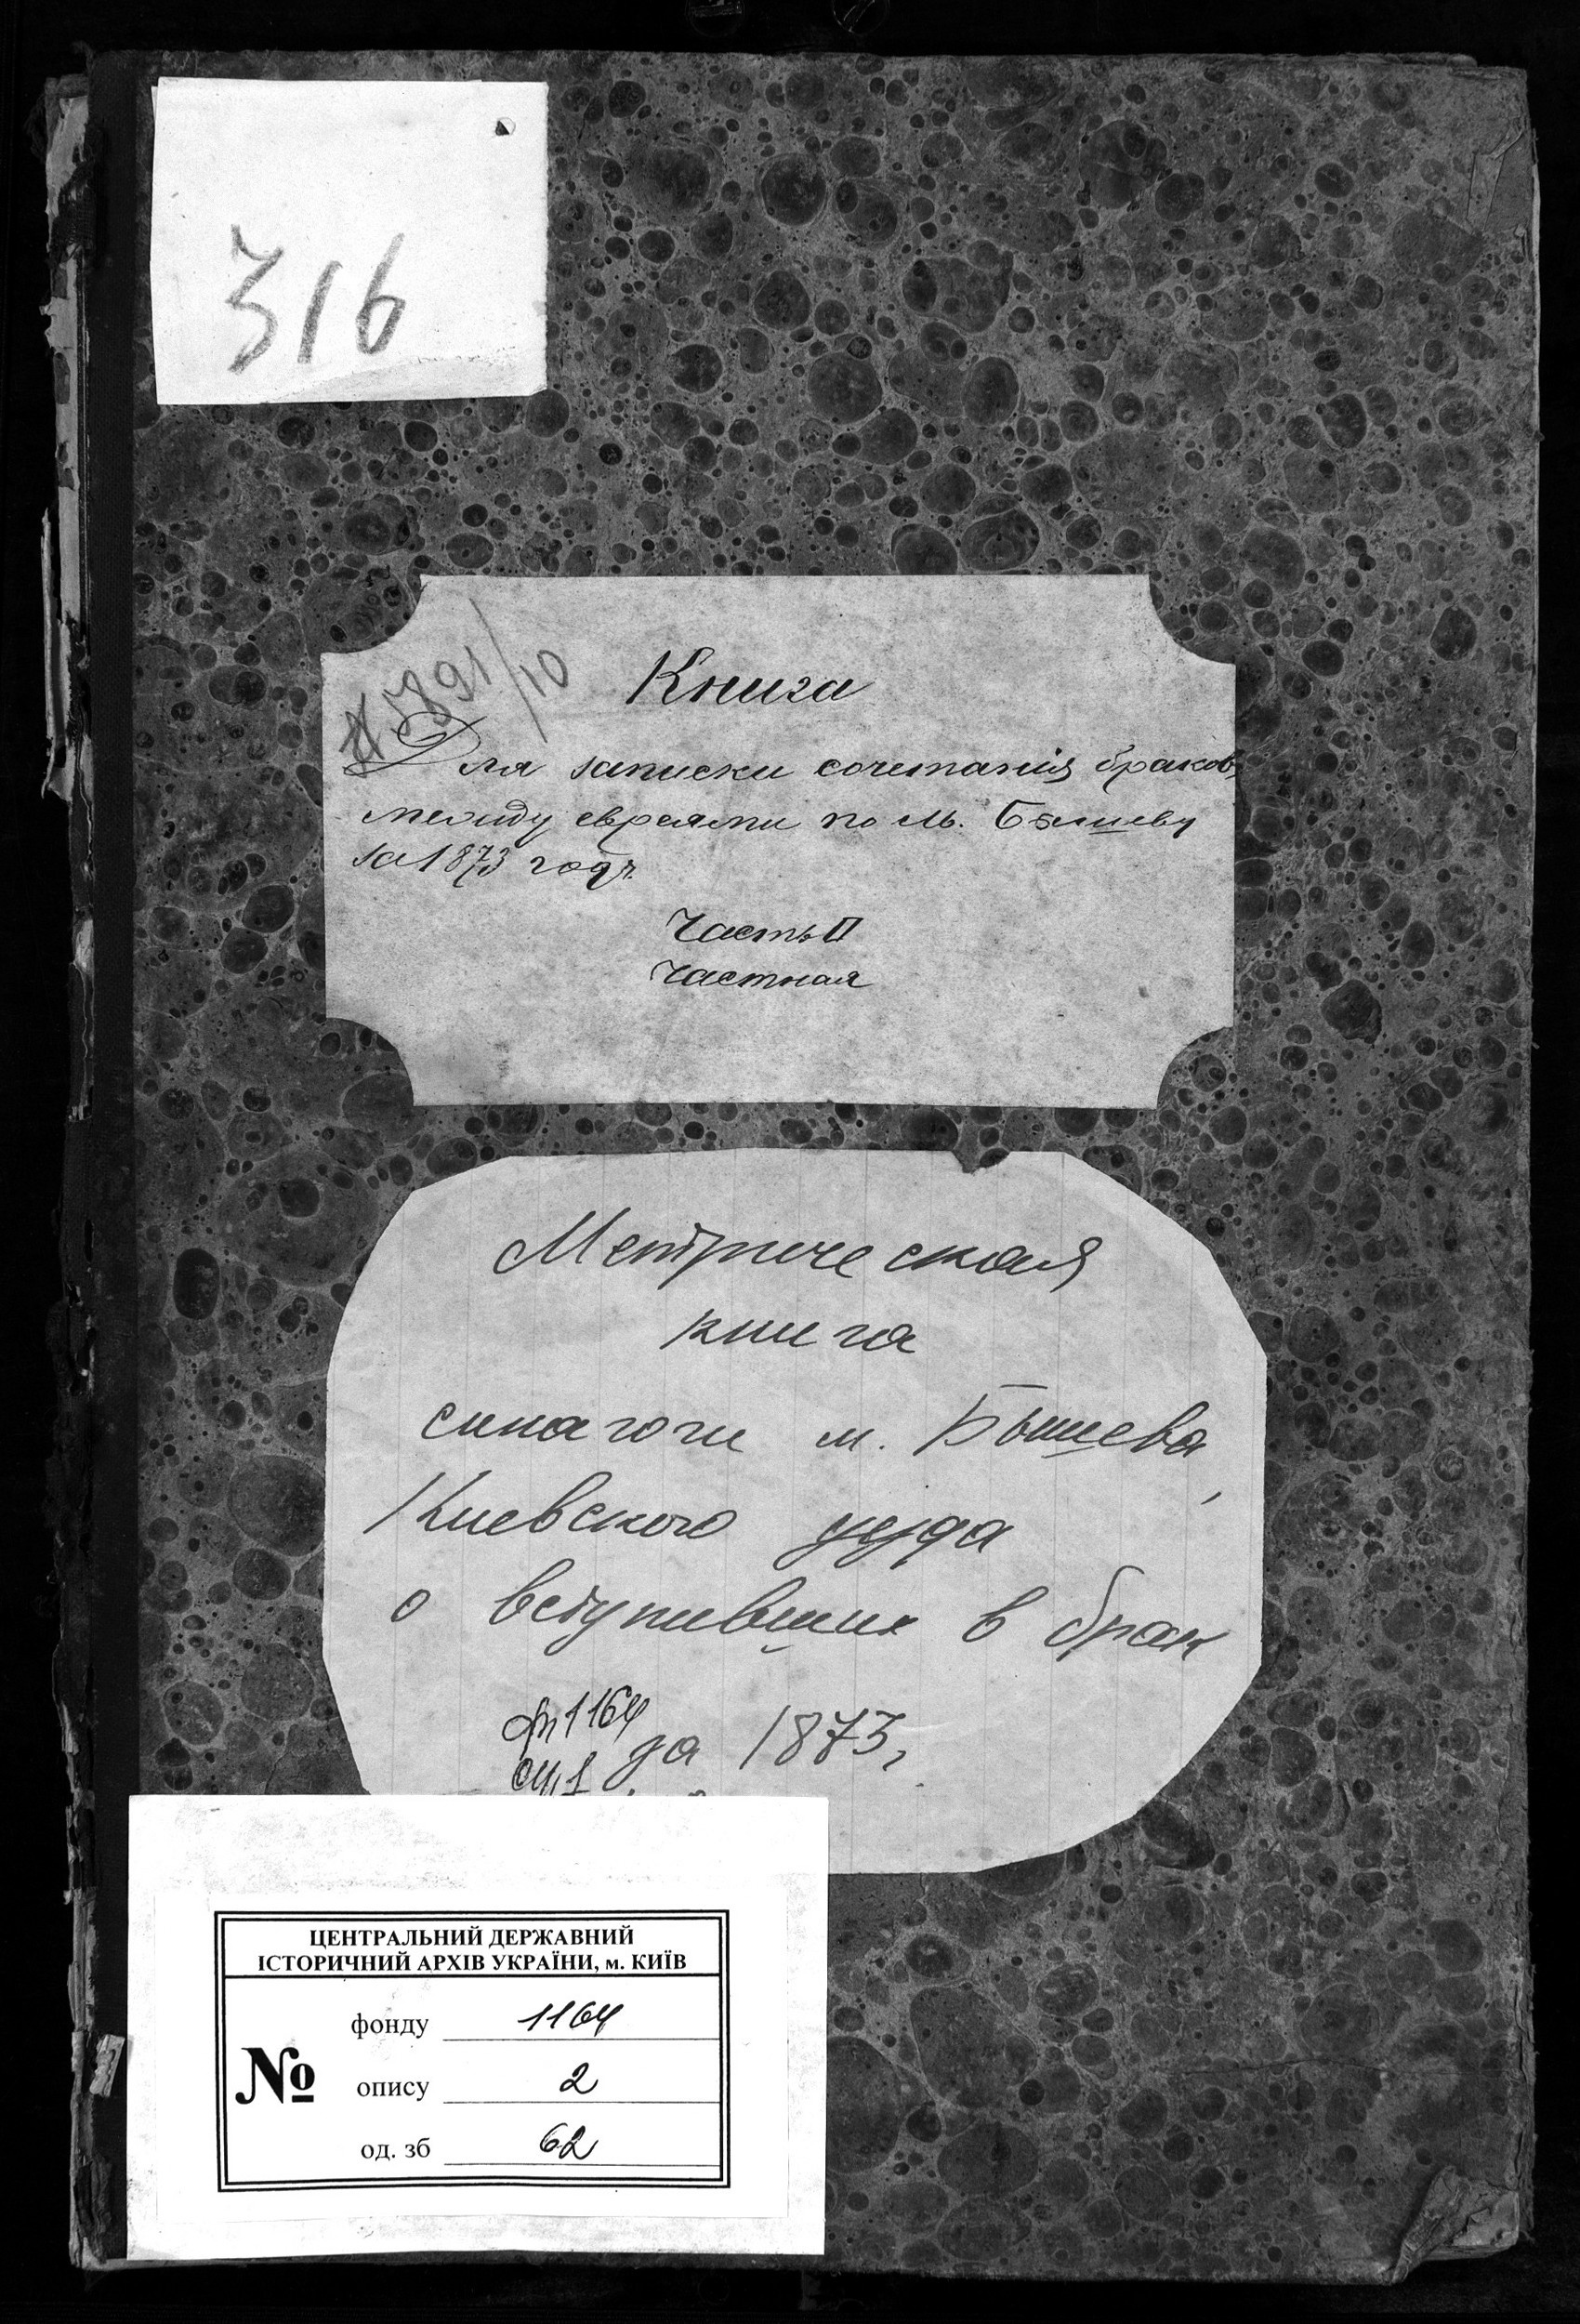 316
№ 1891/10
Книга
Для записки сочетанія браковъ
между евреями по м. Бышеву
за 1873 годъ.
Часть II
Частная
Метрическая
книга
синагоги м. Бышева,
Киевского уезда
о вступивших в брак
ф. 1164
оп. 1
за 1873 г.
ЦЕНТРАЛЬНИЙ ДЕРЖАВНИЙ
ІСТОРИЧНИЙ АРХІВ УКРАЇНИ, м. КИЇВ
№
фонду 1164
опису 2
од. зб 62